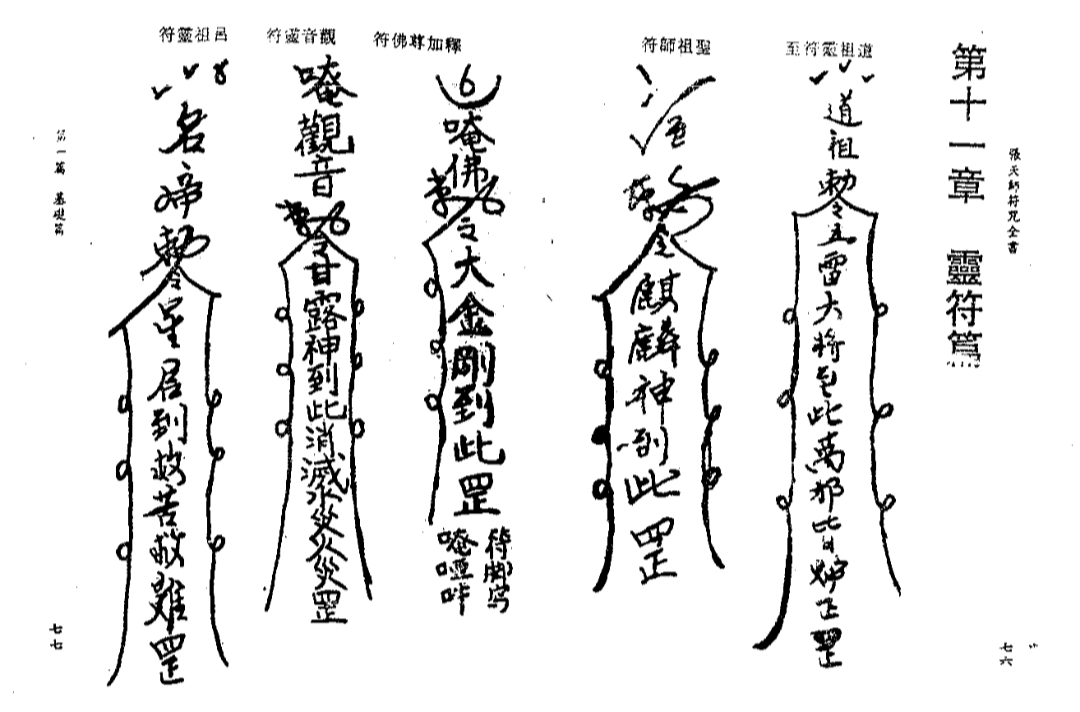 張天師符咒全書
第十一章 靈符篇
七六
道祖靈符至
道祖勅令五雷大將到此萬邪皆歸正罡
聖祖師符
令麒麟神到此罡
釋加尊佛符
唵佛
令大金剛到此罡
符腳寫
唵啞吽
觀音靈符
唵觀音
令甘露神到此消滅水災火災罡
呂祖靈符
勅令星君到救苦救難罡
第一篇 基礎篇
七七